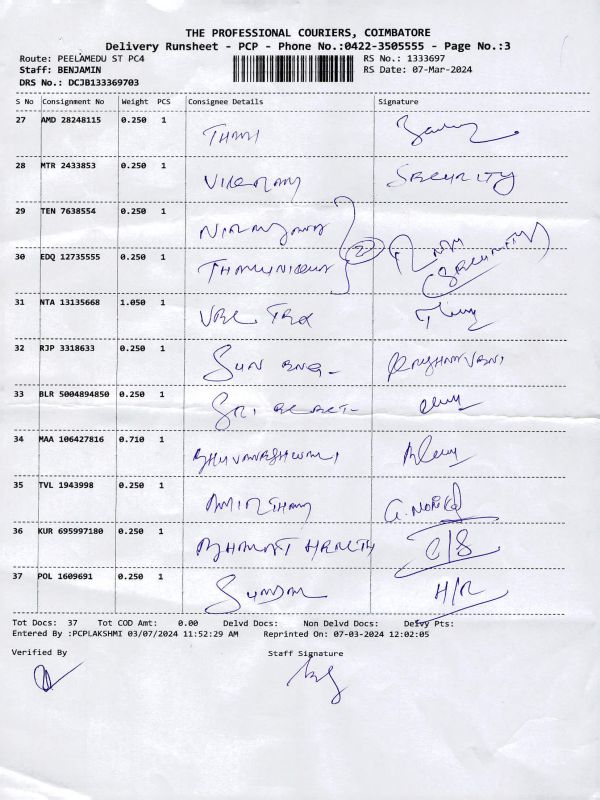 THE PROFESSIONAL COURIERS, COIMBATORE
Delivery Runsheet - PCP - Phone No.:0422-3505555 - Page No.:3
Route: PEELAMEDU ST PC4 RS No.: 1333697
Staff: BENJAMIN RS Date: 07-Mar-2024
DRS No.: DCJB133369703
S No Consignment No Weight PCS Consignee Details Signature
27 AMD 28248115 0.250 1
28 MTR 2433853 0.250 1 SECURITY
29 TEN 7638554 0.250 1
30 EDQ 12735555 0.250 1 (SECURITY)
31 NTA 13135668 1.050 1
32 RJP 3318633 0.250 1 SUN
33 BLR 5004894850 0.250 1 SRI
34 MAA 106427816 0.710 1 BHUVANESHWARI
35 TVL 1943998 0.250 1
36 KUR 695997180 0.250 1 C/S
37 POL 1609691 0.250 1 H/R
Tot Docs: 37 Tot COD Amt: 0.00 Delvd Docs: Non Delvd Docs: Delvy Pts:
Entered By :PCPLAKSHMI 03/07/2024 11:52:29 AM Reprinted On: 07-03-2024 12:02:05
Verified By Staff Signature